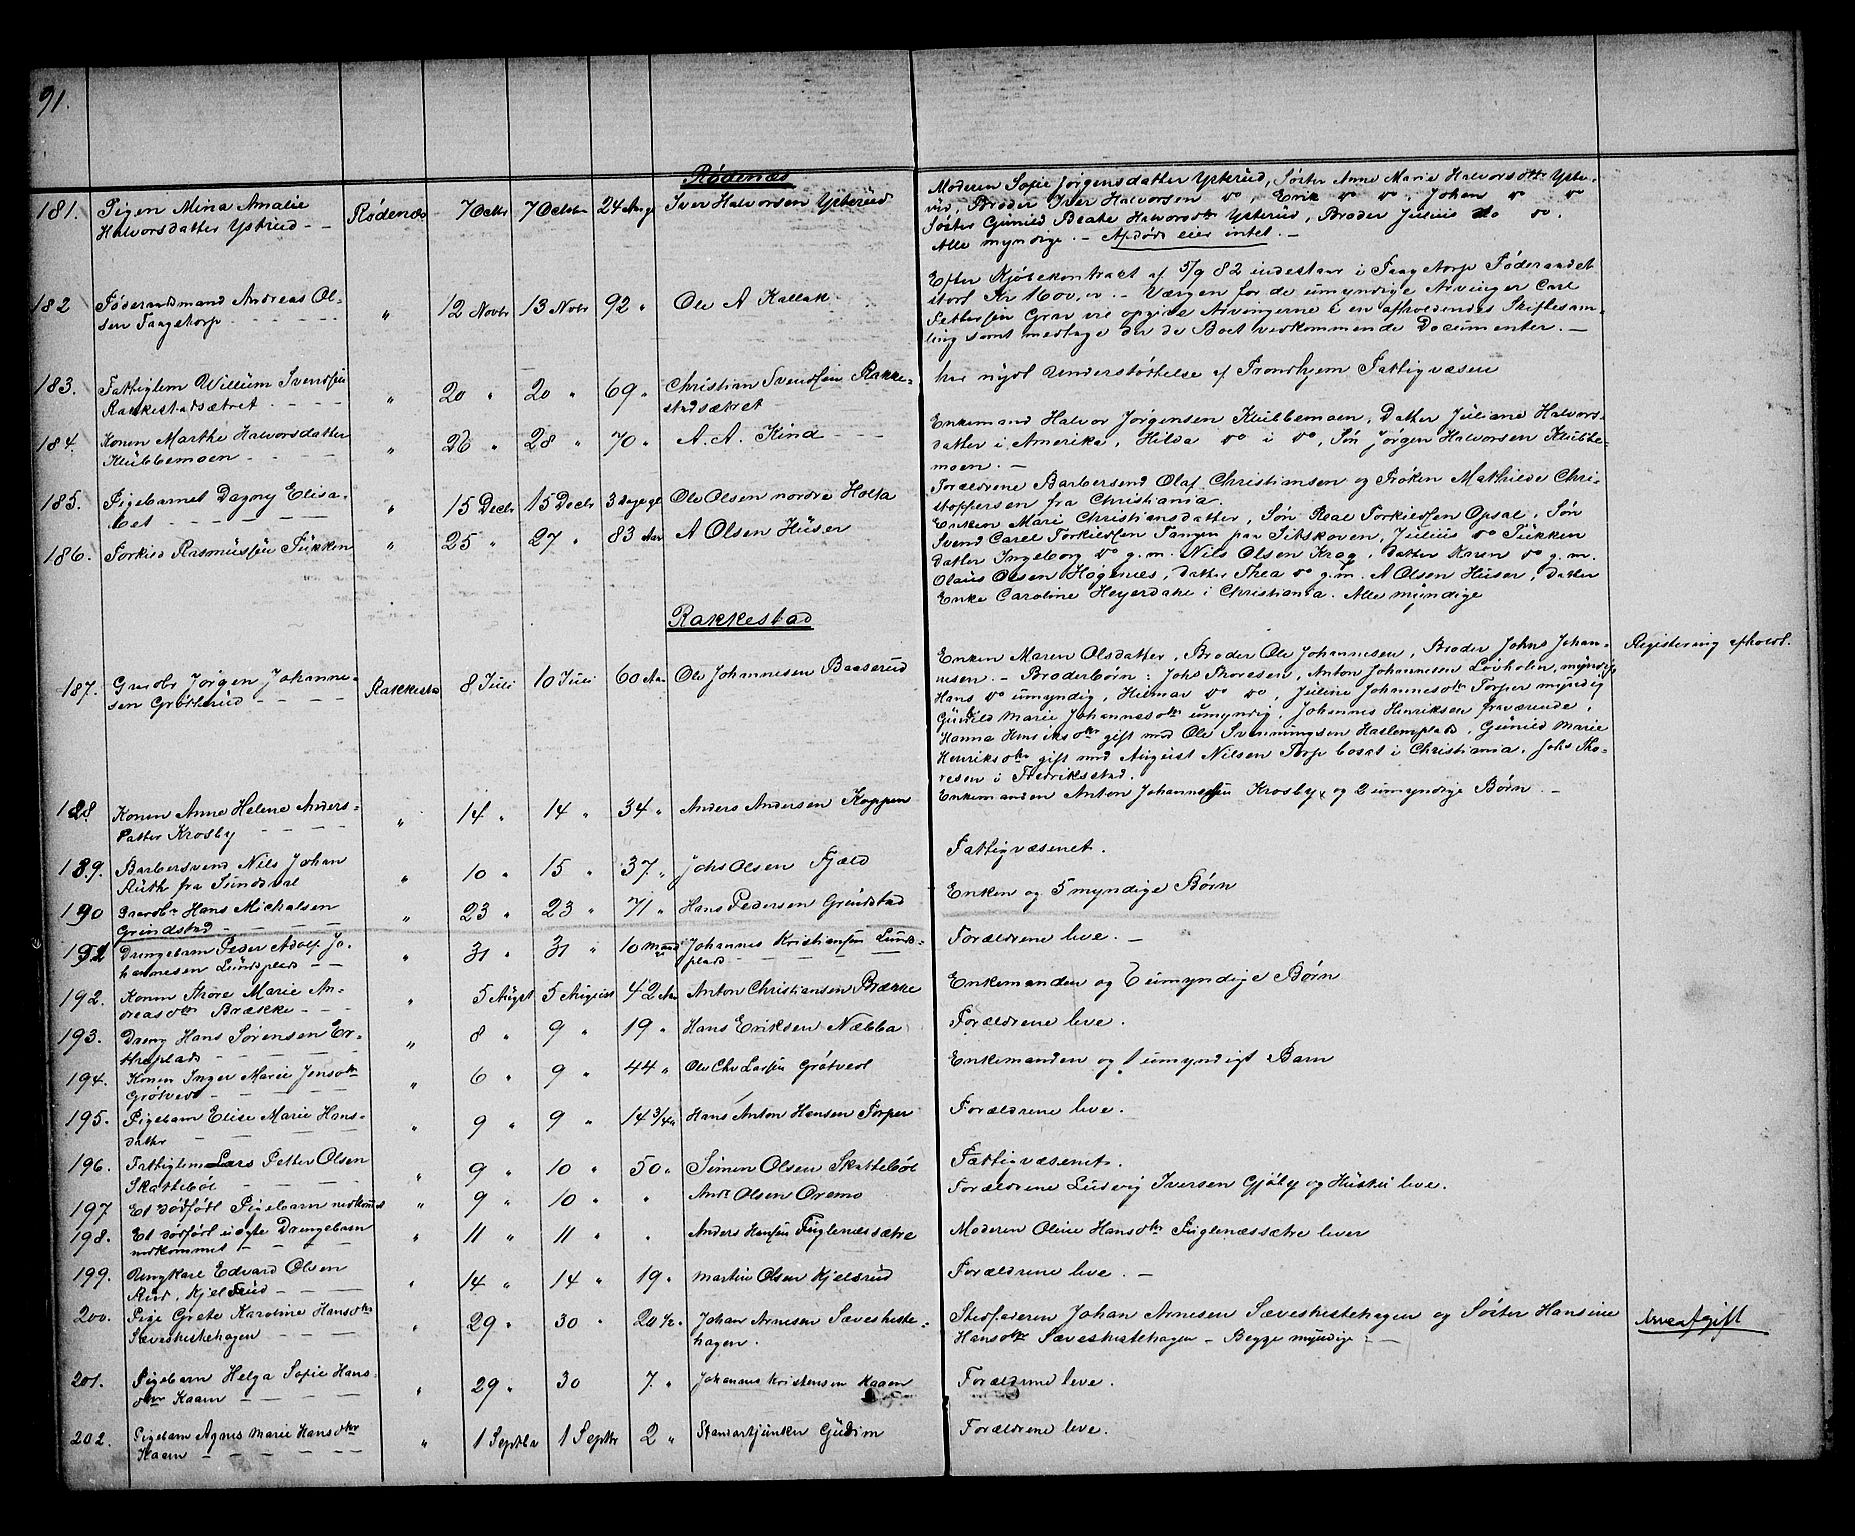 91.
Rødenæs
181. Pigen Mina Amalie
Halvorsdatter Ystrud - -
Rødenæs 7 Octbr 7 Octobr 24 Aar gl Iver Halvorsen Ysterud
Moderen Sofie Jørgensdatter Ysterud, Søster Anne Marie Halvorsdttr Yste-
rud, Broder Iver Halvorsen do, Erik do do, Johan do do
Søster Gunild Beate Halvorsdtr Ysterud, Broder Julius do do.
Alle myndige. - Afdøde eier intet. -
182 Føderaadsmand Andreas Ol-
sen Taagetorp - - - -
" 12 Novbr 13 Novbr 92 " Ole A Kallak
Efter Kjøbekontract af 5/9 82 indestaar i Taagetorp Føderaadet
stort Kr 1600,00. - Værgen for de umyndige Arvinger Carl
Pettersen Grav vil opgive Arvingerne i en afholdendes Skiftesam-
ling samt medtage der de Boet vedkommende Documenter. -
183. Fattiglem Willum Svendsen
Rakkestadsætret - - - -
" 20 " 20 " 69 " Christian Svendsen Rakke-
stadsætret
har nydt Understøttelse af Trondhjem Fattigvæsen
184. Konen Marthe Halvorsdatter
Klubbemoen - - - -
" 26 " 28 " 70 " A. A. Kind - -
Enkemand Halvor Jørgensen Klubbemoen, Datter Juliane Halvors-
datter i Amerika, Hilda do i do, Søn Jørgen Halvorsen Klubbe-
moen. -
185. Pigebarnet Dagny Elisa-
bet - - - - -
" 15 Decbr 15 Decbr 3 Dage gl Ole Olsen nordre Holta
Forældrene Barbersvend Olaf Christiansen og Frøken Mathilde Chri-
stoppersen fra Christiania.
186. Torkild Rasmussen Tukken
" 25 " 27 " 83 Aar A Olsen Huser
Enken Mari Christiansdatter, Søn Real Torkildsen Opsal, Søn
Svend Carel Torkildsen Tangen paa Sitskoven, Julius do Tukken
datter Ingeborg do g.m. Nils Olsen Krog, datter Karen do g.m.
Olaus Olsen Høgenæs, datter Thea do g.m. A Olsen Huser, datter
Enke Caroline Heyerdahl i Christiania. Alle myndige
Rakkestad
187. Gaardbr Jørgen Johanne-
sen Grøtterud - - - -
Rakkestad 8 Juli 10 Juli 60 Aar Ole Johannesen Baaserud
Enken Maren Olsdatter, Broder Ole Johannesen, Broder Johs Johan-
nesen. - Broderbørn: Johs Thoresen, Anton Johannesen Løiholen, myndig
Hans do umyndig, Hilmar do do, Juline Johannesdtr Torper myndig
Gunild Marie Johannesdtr umyndig, Johannes Henriksen fraværende,
Hanna Henriksdtr gift med Ole Svenningsen Haslemplads, Gunild Marie
Henriksdtr gift med August Nilsen Torp bosat i Christiania. Johs Tho-
resen i Fredriksstad.
Registrering afholdt.
188. Konen Anne Helene Anders-
datter Krosby - - - -
" 14 " 14 " 34 " Anders Andersen Koppen
Enkemanden Anton Johannessen Krosby, og 2 umyndige Børn. -
189. Barbersvend Nils Johan
Ruth fra Sundsval
" 10 " 15 " 37 " Johs Olsen Fjæld
Fattigvæsenet.
190 Gaardbr Hans Michalsen
Grindstad - - - -
" 23 " 23 " 71 " Hans Pedersen Grindstad
Enken og 5 myndige Børn
191 Drengebarn Peder Adolf Jo-
hannesen Lundsplads - -
" 31 " 31 " 10 Maaneder Johannes Kristiansen Lunds-
plads - - - - -
Forældrene leve. -
192. Konen Thore Marie An-
dreasdtr Brække - - -
" 5 August 5 August 42 Aar Anton Christiansen Brække
Enkemanden og 6 umyndige Børn
193. Dreng Hans Sørensen Er-
theplads - - - -
" 8 " 9 " 19 " Hans Eriksen Næbba
Forældrene leve.
194. Konen Inger Marie Jensdtr
Grøtvedt - - - -
" 6 " 9 " 44 " Ole Chr Larsen Grøtvedt
Enkemanden og 1 umyndigt Barn
195. Pigebarn Elise Marie Hans-
datter - - - -
" 9 " 9 " 14 3/4 " Hans Anton Hansen Torper
Forældrene leve.
196. Fattiglem Lars Petter Olsen
Skattebøl - - - -
" 9 " 10 " 50 " Simen Olsen Skattebøl
Fattigvæsenet.
197 Et dødfødt Pigebarn nedkommet
" 9 " 10 " " Andr Olsen Oremo
Forældrene Ludvig Iversen Gjølby og Hustru leve.
198. Et dødfødt uægte Drengebarn
nedkommet - - -
" 11 " 11 " " Anders Hansen Fuglenæssætre
Moderen Oline Hansdtr Fuglenæssætre lever
199. Ungkarl Edvard Olsen
Rud, Kjelsrud - - -
" 14 " 14 " 19 " Martin Olsen Kjelsrud
Forældrene leve. -
200. Pige Grete Karoline Hansdtr
Sæveskistehagen - - -
" 29 " 30 " 20 1/2 " Johan Arnesen Sæveskiste-
hagen.
Stedfaderen Johan Arnesen Sæveskistehagen og Søster Hansine
Hansdtr Sæveskistehagen - Begge myndige -
Arveafgift
201. Pigebarn Helga Sofie Hans-
dtr Kaaen - - - -
" 29 " 30 7 " Johannes Kristensen Kaaen
Forældrene leve.
202. Pigebarn Agnes Marie Hansdtr
Kaaen - - - - -
" 1 Septbr 1 Septbr 2 " Standartjunker Gudim
Forældrene leve.